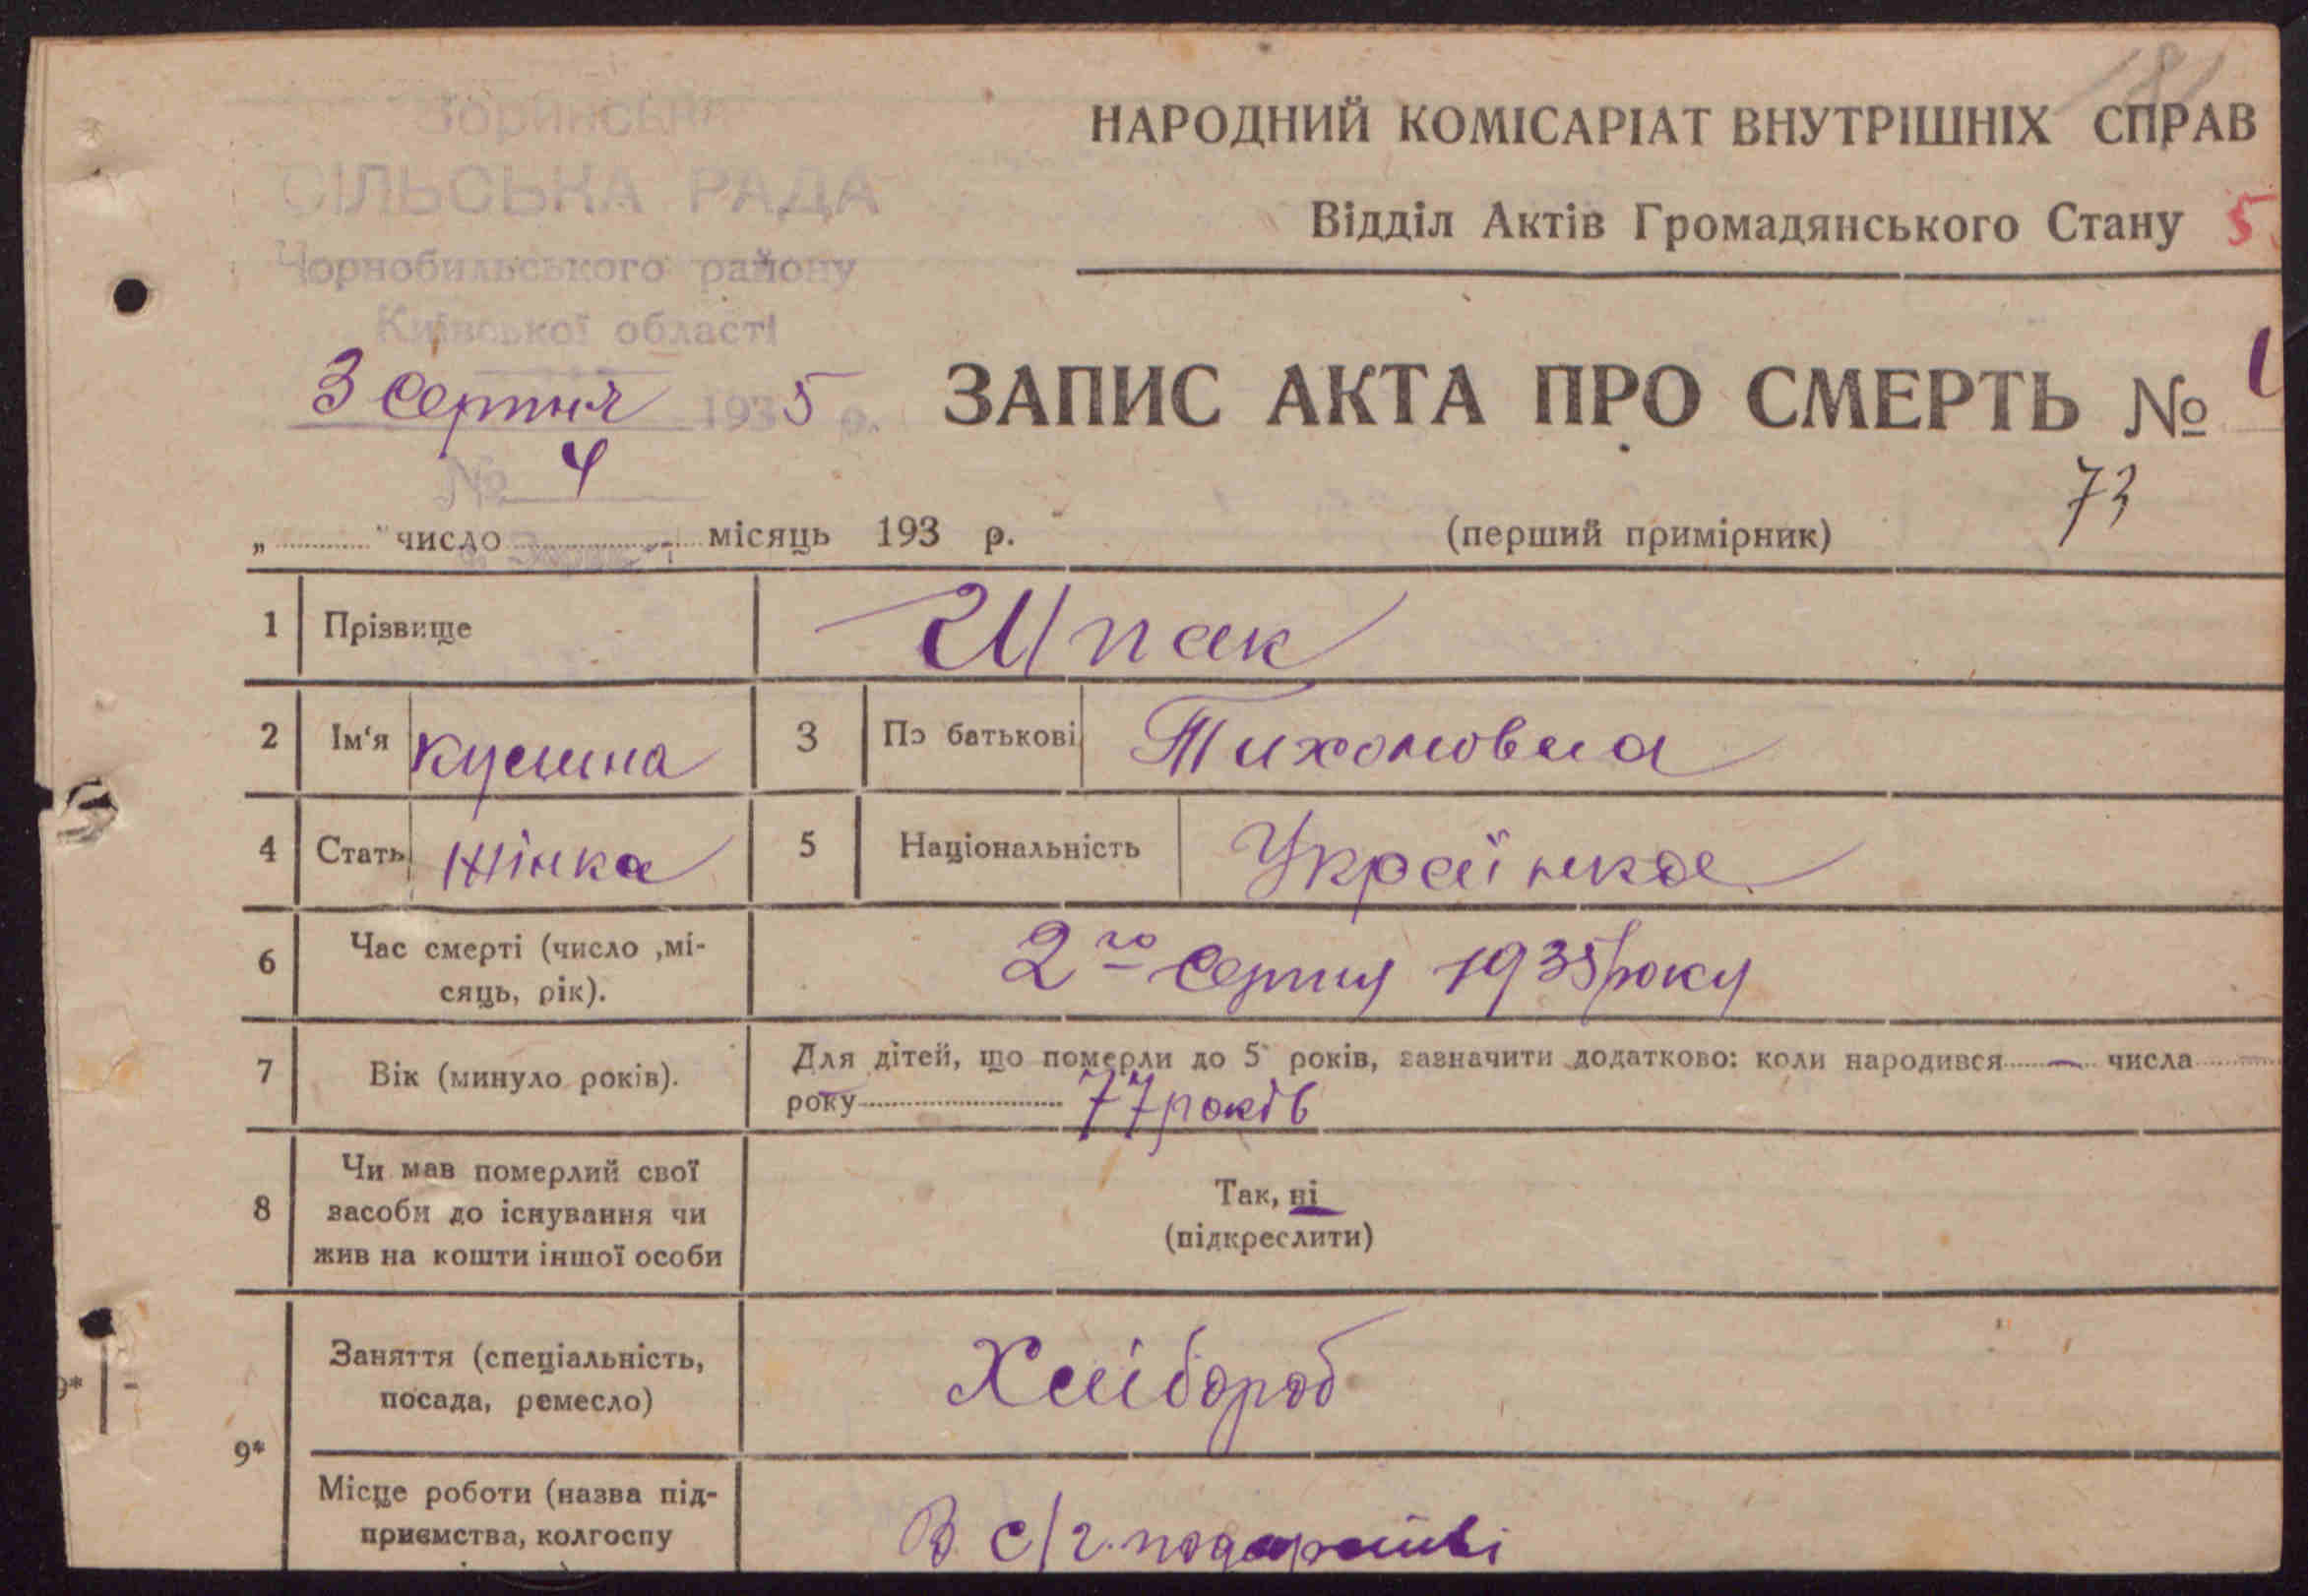 181
Зоринська
СІЛЬСЬКА РАДА
Чорнобильського району
Київської області
3 Серпня 1935 р.
№ 4
НАРОДНИЙ КОМІСАРІАТ ВНУТРІШНІХ СПРАВ
Відділ Актів Громадянського Стану 5
ЗАПИС АКТА ПРО СМЕРТЬ №
73
„ " число місяць 193 р. (перший примірник)
1 Прізвище Шпак
2 Ім'я 3 По батькові Тихоновна
4 Стать Жінка 5 Національність Українка
6 Час смерті (число ,мі-
сяць, рік).
2го Серпня 1935 року
7 Вік (минуло років).
Для дітей, що померли до 5 років, зазначити додатково: коли народився — числа
року 77 років
8 Чи мав померлий свої
засоби до існування чи
жив на кошти іншої особи
Так, ні
(підкреслити)
9*
Заняття (спеціальність,
посада, ремесло)
Хлібороб
Місце роботи (назва під-
приємства, колгоспу
В с/г.